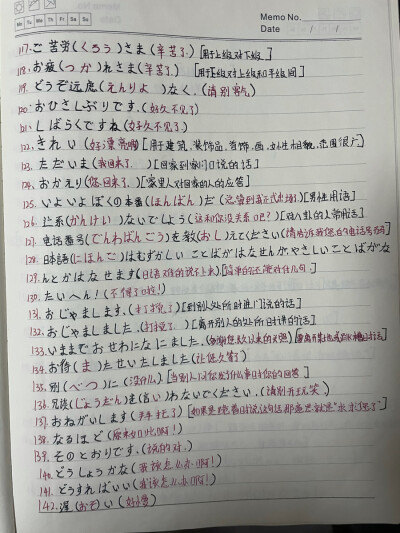 Memo No.
Mo Tu We Th Fr Sa Su
Date / /
117. ご苦労(くろう)さま(辛苦了.)[用于上级对下级]
118. お疲(つか)れさま(辛苦了.) [用于下级对上级和平级间]
119. どうぞ远虑(えんりょ)なく.(请别客气)
120. おひさしぶりです.(好久不见了)
121. しばらくですね(好久不见了)
122. きれい(好漂亮啊)[用于建筑,装饰品,首饰,画,女性相貌,范围很广]
123. ただいま(我回来了.)[回家到家门口说的话]
124. おかえり(您回来了.)[家里人对回家的人的应答]
125. いよいよぼくの本番(ほんばん)だ(总算到我正式出场了)[男性用语]
126. 关系(かんけい)ないでしょう(这和你没关系吧?)[对八卦的人常用话]
127. 电话番号(でんわばんごう)を教(おし)えてください(请告诉我您的电话号码)
128. 日本語(にほんご)はむずかしい ことばがはなせんが,やさしいことばがな
129. んとかはなせます(日语难的说不上来)[简单的还能对付几句]
130. たいへん!(不得了啦!)
131. おじゃまします.(打搅了.)[到别人处所时进门说的话]
132. おじゃましました.(打搅了.)[离开别人的处所时讲的话]
133. いままでおせわになにました.(多谢您久以来的关照)
134. お待(ま)たせいたしました(让您久等了)
135. 别(べつ)に(没什么.)[当别人问你发什么事时你的回答]
136. 冗谈(じょうだん)を言(い)わないでください.(请别开玩笑)
137. おねがいします(拜托了)[如果是跪着时说这句话那意思就是"求求您了"]
138. なるほど(原来如此啊!)
139. そのとおりです.(说的对.)
140. どうしょうかな(我该怎么办啊!)
141. どうすればいい(我该怎么办啊!)
142. 遅(おそ)い(好慢)